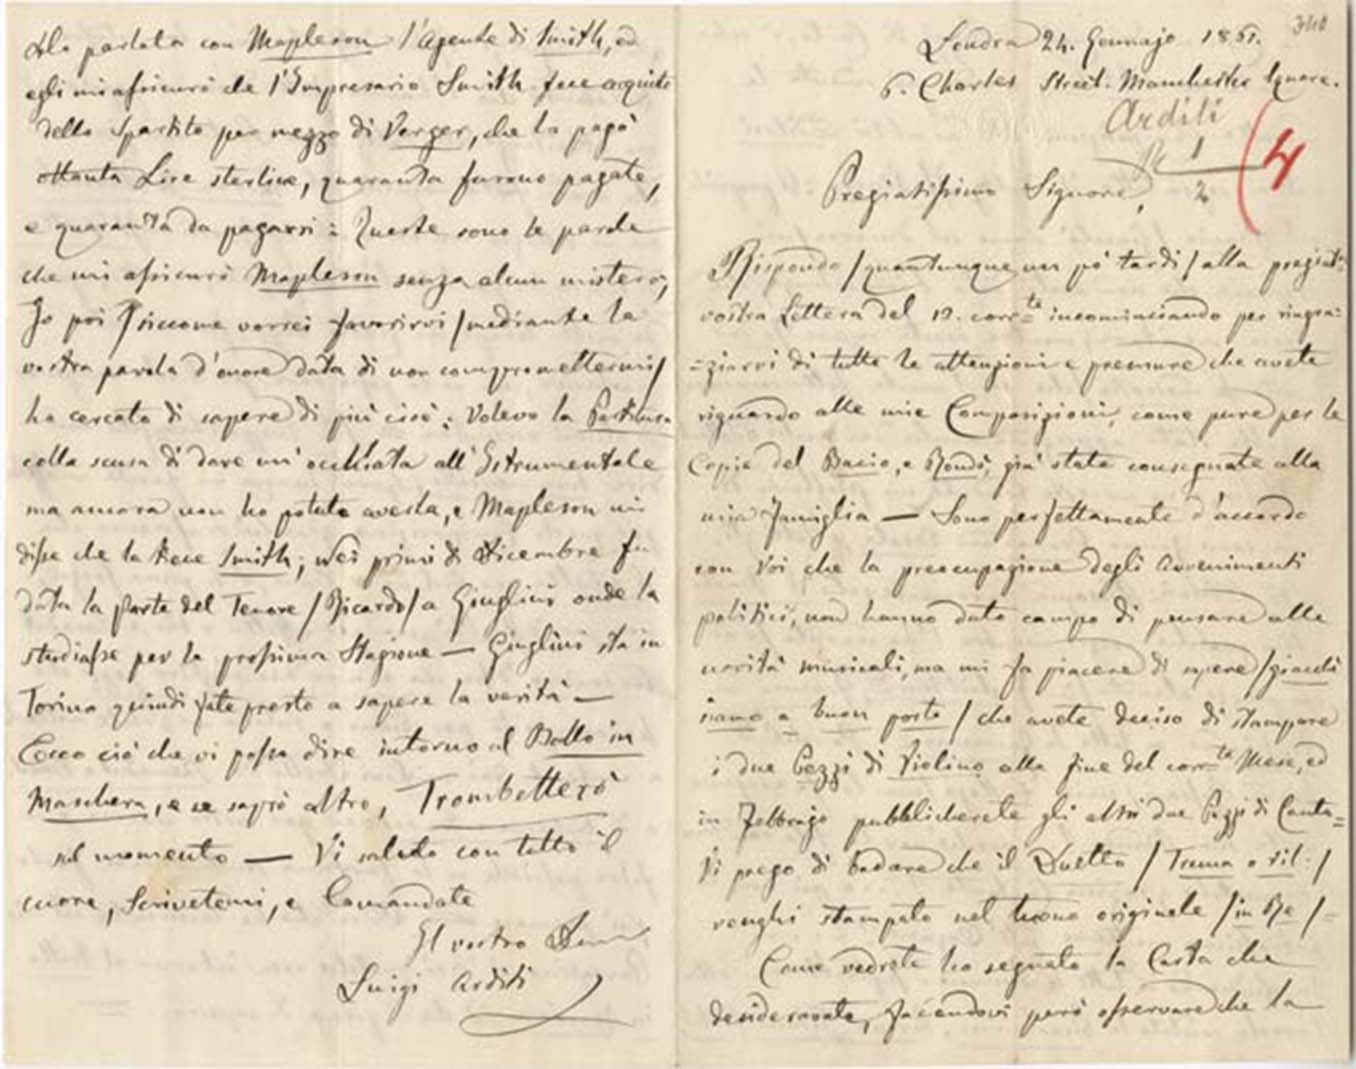 Londra 24. Gennajo 1861.
340
6. Charles Street. Manchester Square.
Arditi
R 1/2
4
Pregiatissimo Signore,
Rispondo /quantunque un pò tardi/ alla pregiat:
vostra Lettera del 19. corr:te incominciando per ringra=
=ziarvi di tutte le attenzioni e premure che avete
riguardo alle mie Composizioni, come pure per le
Copie del Bacio, e Rondò, già state consegnate alla
mia famiglia — Sono perfettamente d'accordo
con Voi che la preocupazione degli avvenimenti
politici, non hanno dato campo di pensare alle
novità musicali, ma mi fa piacere di sapere /giacché
siamo a buon porto/ che avete deciso di stampare
i due Pezzi di Violino alla fine del corr:te Mese, ed
in Febbrajo pubblicherete gli altri due Pezzi di Canto=
Vi prego di badare che il Duetto /Trema o vil:/
venghi stampato nel tuono originale /in Re/=
Come vedrete ho segnato la Carta che
desideravate, facendovi però osservare che la
Ho parlato con Mapleson l'Agente di Smith, ed
egli mi assicurò che l'Impresario Smith fece acquisto
dello Spartito per mezzo di Verger, che la pagò
ottanta Lire sterline, quaranta furono pagate,
e quaranta da pagarsi: Queste sono le parole
che mi assicurò Mapleson senza alcun mistero;
Io poi /siccome vorrei favorirvi/ mediante la
vostra parola d'onore data di non compromettermi/
ho cercato di sapere di più cioè: Volevo la Partitura
colla scusa di dare un'occhiata all'Istrumentale
ma ancora non ho potuto averla, e Mapleson mi
disse che la tiene Smith; Nei primi di Dicembre fu
data la parte del Tenore /Riccardo/ a Giuglini onde la
studiasse per la prossima Stagione — Giuglini sta in
Torino quindi fate presto a sapere la verità —
Ecco ciò che vi posso dire intorno al Ballo in
Maschera, e se saprò altro, Trombetterò
sul momento — Vi saluto con tutto il
cuore, Scrivetemi, e Comandate
Il vostro
Luigi Arditi